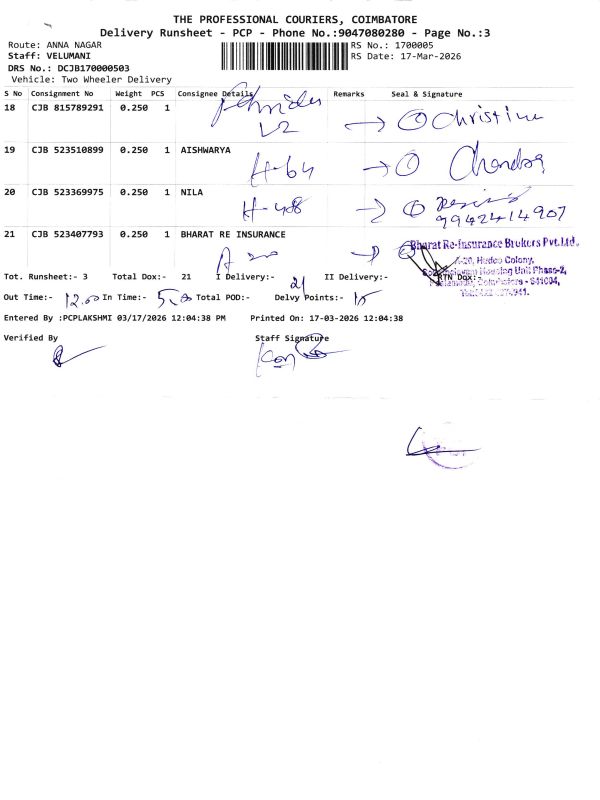 THE PROFESSIONAL COURIERS, COIMBATORE
Delivery Runsheet - PCP - Phone No.:9047080280 - Page No.:3
Route: ANNA NAGAR RS No.: 1700005
Staff: VELUMANI RS Date: 17-Mar-2026
DRS No.: DCJB170000503
Vehicle: Two Wheeler Delivery
S No Consignment No Weight PCS Consignee Details Remarks Seal & Signature
18 CJB 815789291 0.250 1 L2 → Christina
19 CJB 523510899 0.250 1 AISHWARYA
H-64 →
20 CJB 523369975 0.250 1 NILA
H-48 →
9942414907
21 CJB 523407793 0.250 1 BHARAT RE INSURANCE
Bharat Re-Insurance Brokers Pvt.Ltd.
A 20
Hudco Colony,
Housing Unit Phase-2,
Coimbatore - 641004,
Tot. Runsheet:- 3 Total Dox:- 21 I Delivery:- 21 II Delivery:- RTN Dox:-
Out Time:- 12.00 In Time:- 5.00 Total POD:- Delvy Points:- 15
Entered By :PCPLAKSHMI 03/17/2026 12:04:38 PM Printed On: 17-03-2026 12:04:38
Verified By Staff Signature